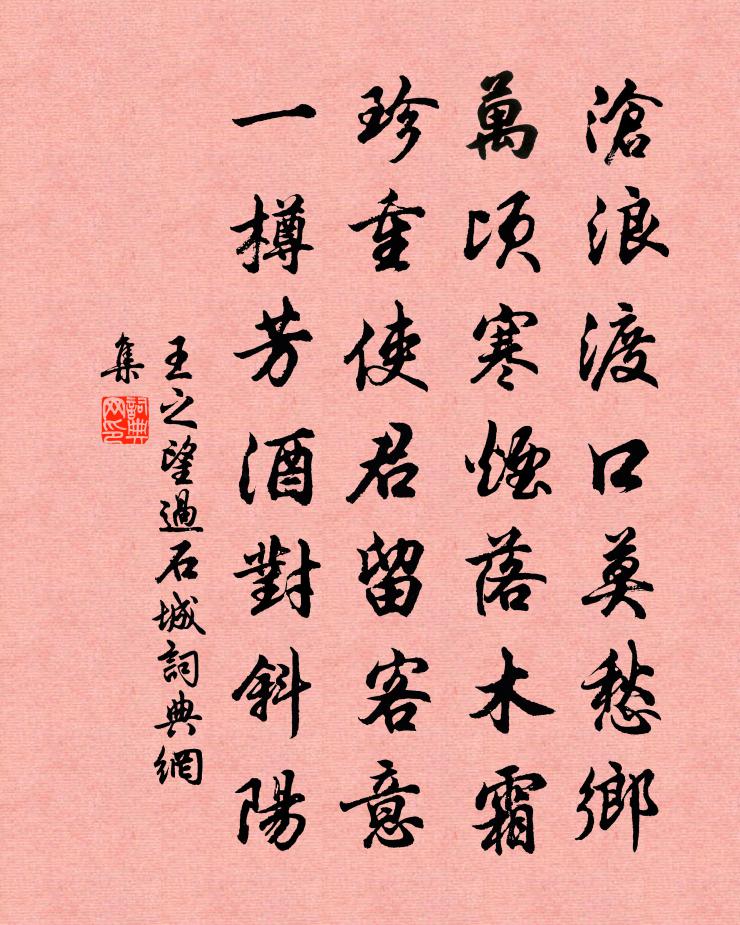 滄浪渡口莫愁鄉
萬頃寒煙落木霜
珍重使君留客意
一樽芳酒對斜陽
王之望過石城詞典網
集
詞典
网印